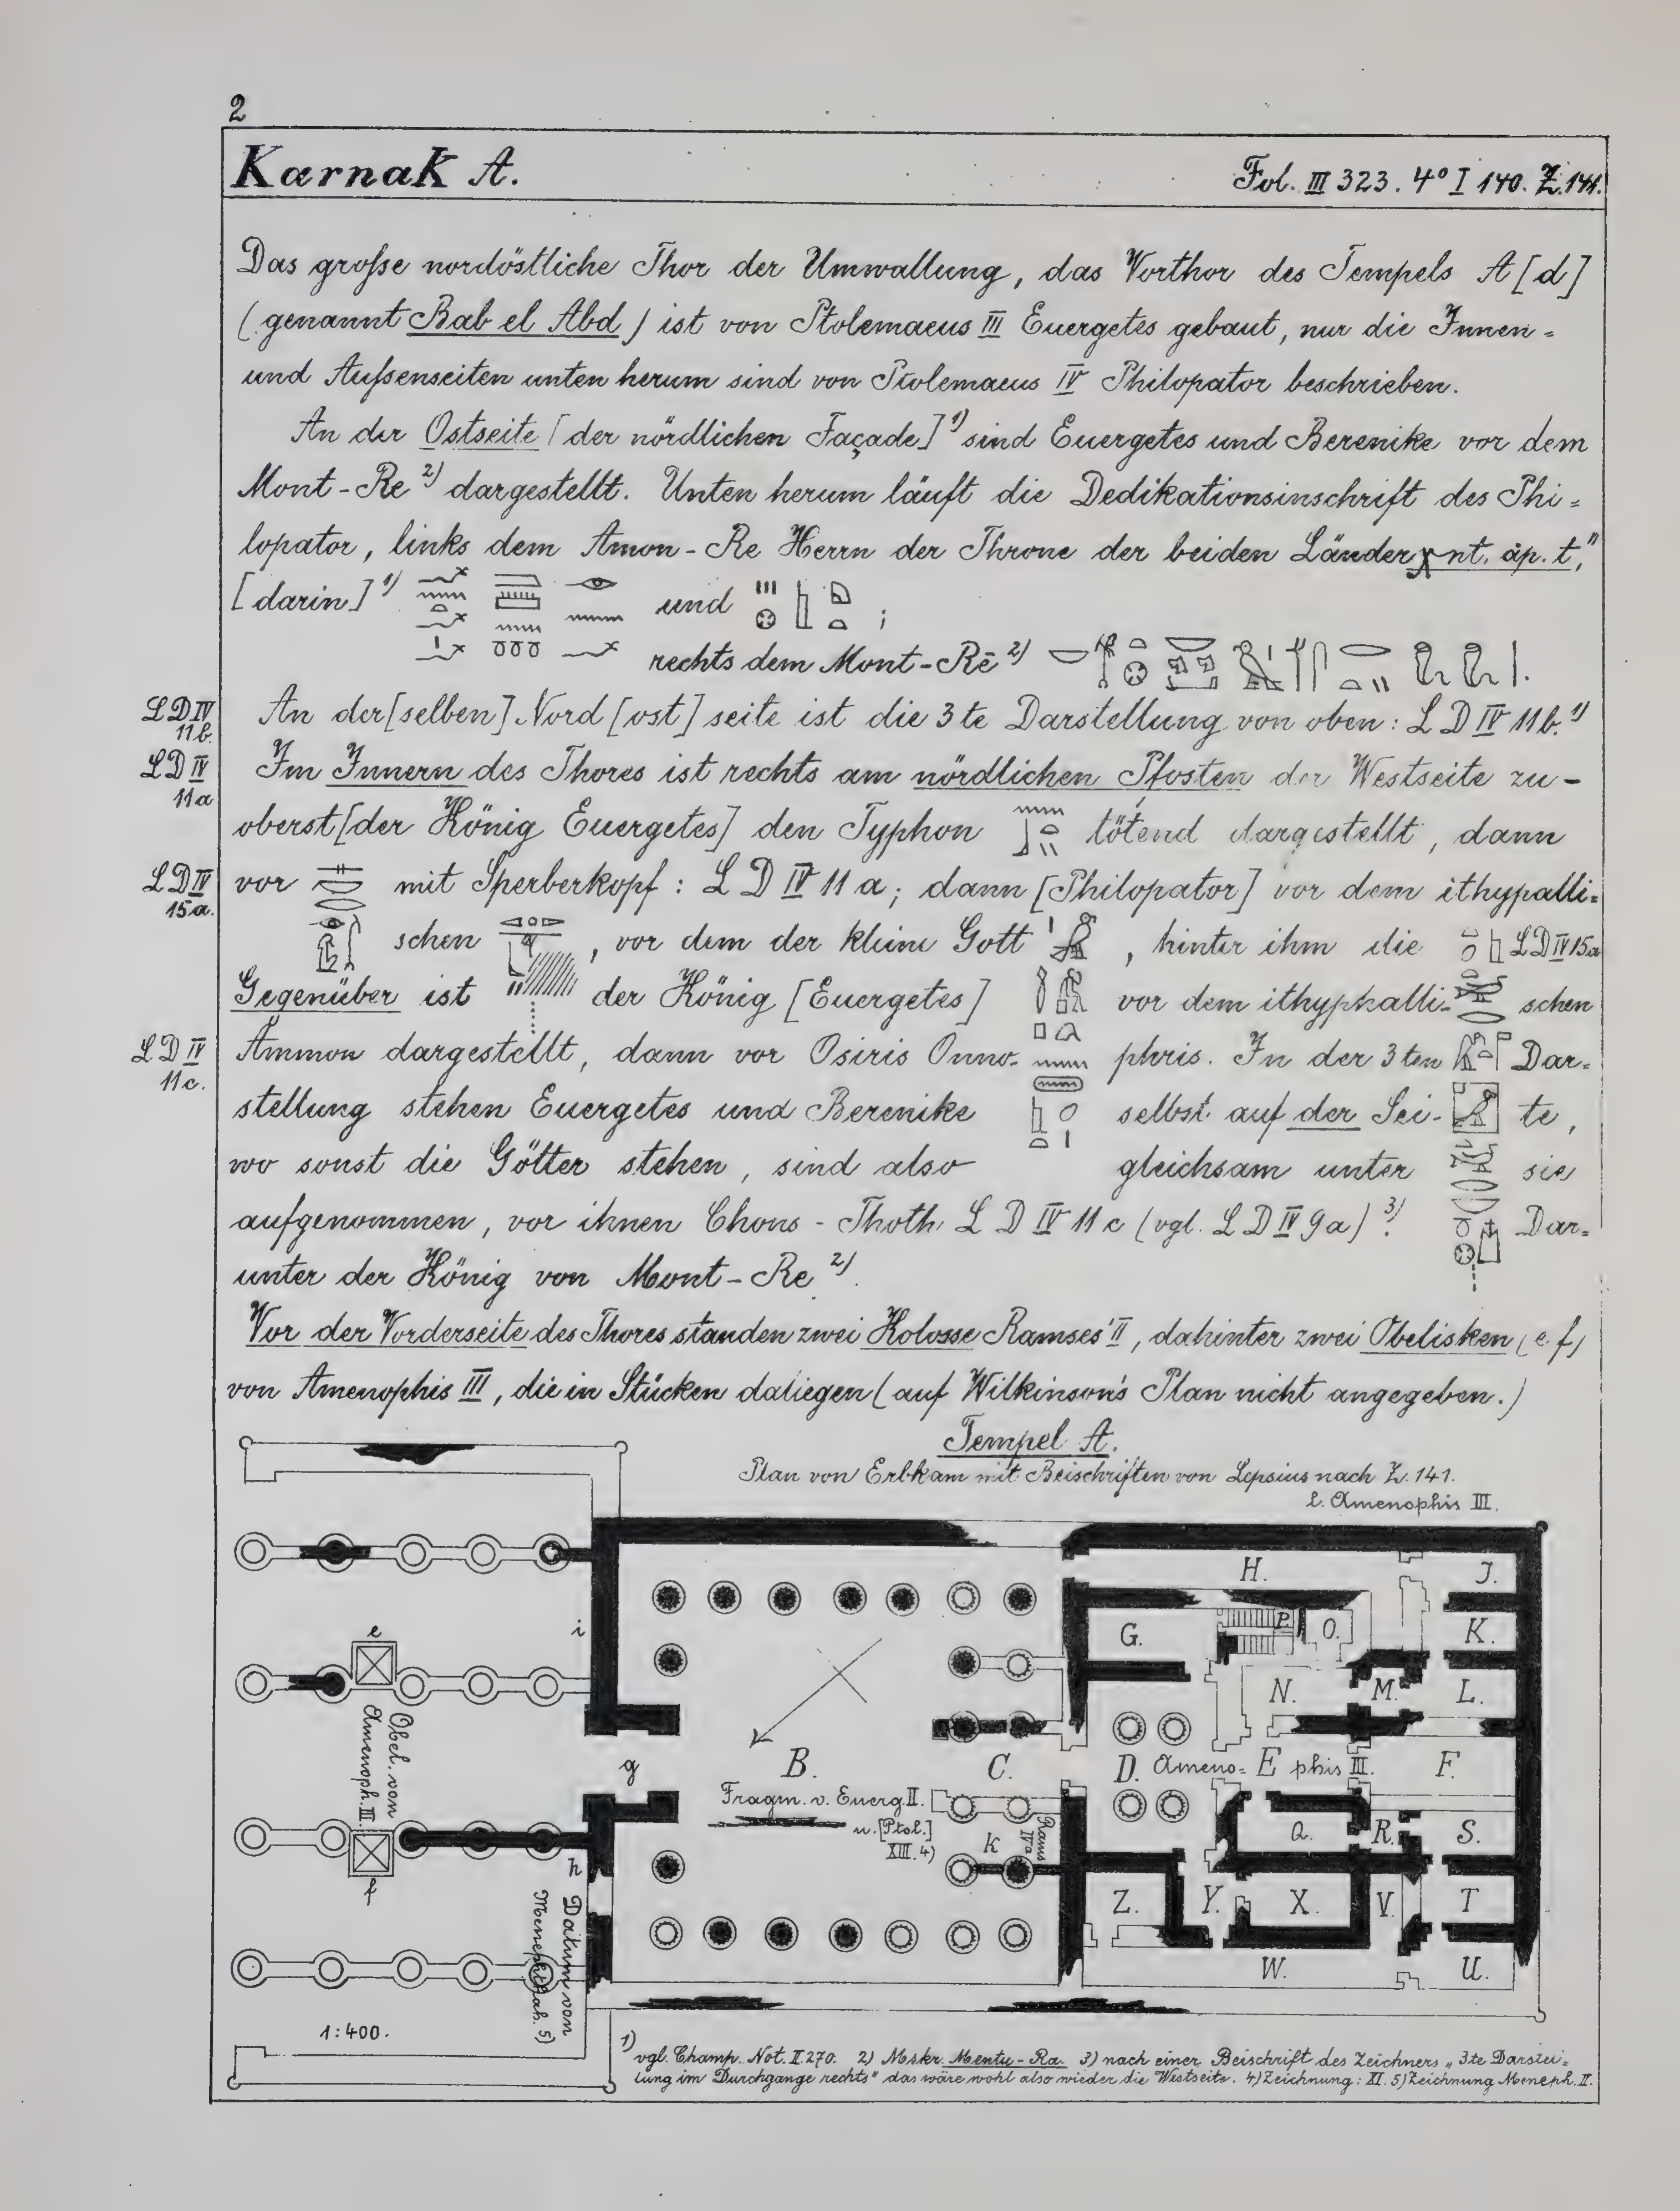 2
Karnak A.
Fol. III 323. 4° I 140. Z. 141.
Das große nordöstliche Thor der Umwallung, das Vorthor des Tempels A [d]
(genannt Bab el Abd) ist von Ptolemaeus III Euergetes gebaut, nur die Innen-
und Außenseiten unten herum sind von Ptolemaeus IV Philopator beschrieben.
An der Ostseite [der nördlichen Façade] 1) sind Euergetes und Berenike vor dem
Mont-Re 2) dargestellt. Unten herum läuft die Dedikationsinschrift des Phi-
lopator, links dem Amon-Re Herrn der Throne der beiden Länder nt. áp. t,"
[darin] 1) und ;
rechts dem Mont-Rē 2)
LD IV
11b.
An der[selben] Nord[ost]seite ist die 3te Darstellung von oben: LD IV 11b. 1)
LD IV
11a
Im Innern des Thores ist rechts am nördlichen Pfosten der Westseite zu-
oberst [der König Euergetes] den Typhon tötend dargestellt, dann
LD IV
15a.
vor mit Sperberkopf: LD IV 11a; dann [Philopator] vor dem ithypalli-
schen , vor dem der kleine Gott , hinter ihm die LD IV 15a
Gegenüber ist der König [Euergetes] vor dem ithyphalli- schen
LD IV
11c.
Ammon dargestellt, dann vor Osiris Onno- phris. In der 3ten Dar-
stellung stehen Euergetes und Berenike selbst auf der Sei- te,
wo sonst die Götter stehen, sind also gleichsam unter sie
aufgenommen, vor ihnen Chons-Thoth LD IV 11c (vgl. LD IV 9a) 3). Dar-
unter der König von Mont-Re 2).
Vor der Vorderseite des Thores standen zwei Kolosse Ramses' II, dahinter zwei Obelisken (e.f)
von Amenophis III, die in Stücken daliegen (auf Wilkinson's Plan nicht angegeben.)
Tempel A.
Plan von Erbkam mit Beischriften von Lepsius nach Z. 141.
l. Amenophis III.
H. J.
G. P. O. K.
e i
N. M. L.
Obel. von
Amenoph. III
g B. C. D. Ameno- E phis III. F.
Fragm. v. Euerg. II.
u. [Ptol.]
XIII. 4)
k
Rams
IVa
Q. R. S.
f h
Z. Y. X. V. T
W. U.
Datum von
Menephthah. 5)
1:400.
1) vgl. Champ. Not. II. 270. 2) Mskr. Mentu-Ra. 3) nach einer Beischrift des Zeichners „3te Darstel-
lung im Durchgange rechts" das wäre wohl also wieder die Westseite. 4) Zeichnung: XI. 5) Zeichnung Meneph. II.